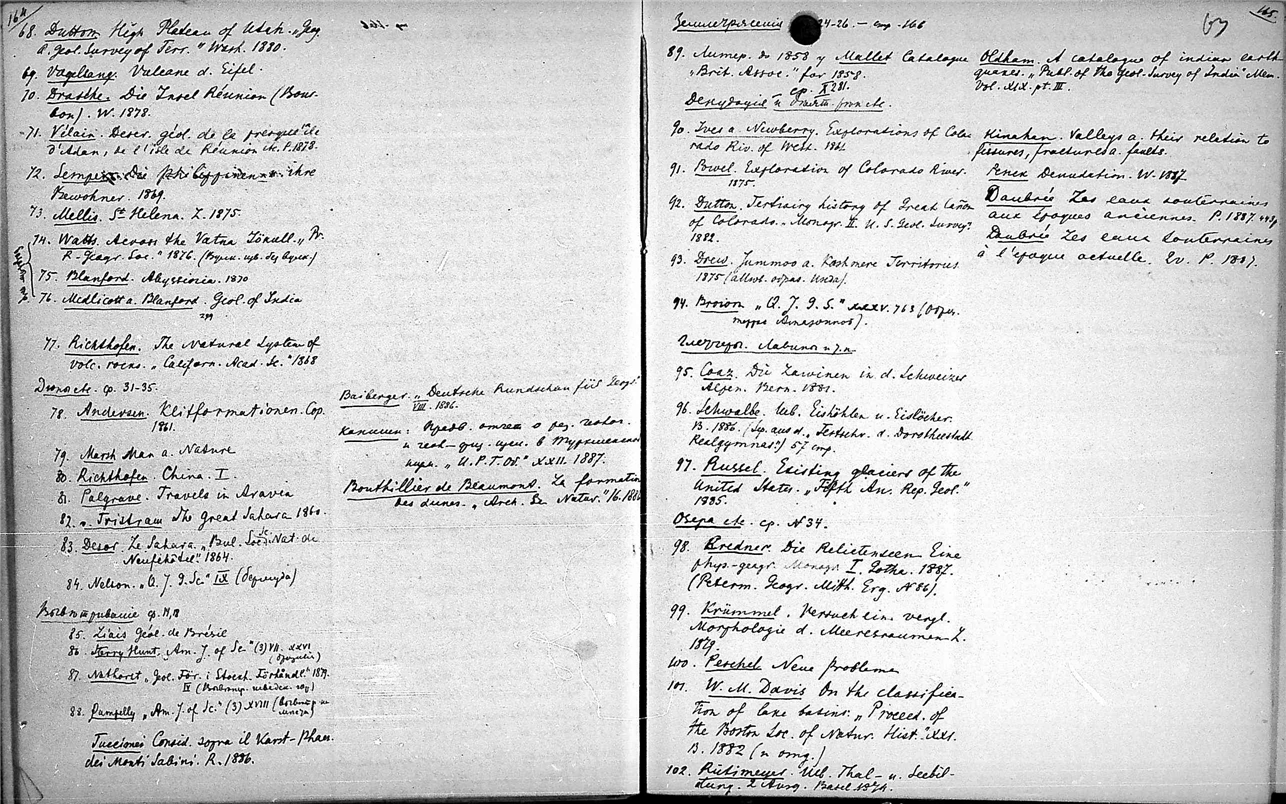 164
68. Dutton High Plateau of Utah. „Geog.
a. geol. Survey of Terr." Wash. 1880.
69. Vogelsang. Vulcane d. Eifel.
70. Drasche. Die Insel Réunion (Bour-
bon). W. 1878.
71. Vélain. Descr. géol. de la presqu'île
d'Aden, de l'isle de Réunion etc. P. 1878.
72. Semper. Die Philippinen u. ihre
Bewohner. 1869.
73. Mellis. St Helena. L. 1875.
74. Watts. Across the Vatna Jökull. „Pr.
R. Geogr. Soc." 1876.
75. Blanford. Abyssinia. 1870
76. Medlicott a. Blanford. Geol. of India
77. Richthofen. The Natural System of
volc. rocks. „Californ. Acad. Sc." 1868
Дюны etc. ср. 31-35.
78. Andersen. Klitformationen. Cop.
1861.
79. Marsh Man a. Nature
80. Richthofen. China. I.
81. Palgrave. Travels in Aravia
82. Tristram The Great Sahara 1860.
83. Desor. Le Sahara. „Bul. Soc. Sc. Nat. de
Neufchâtel". 1864.
84. Nelson. „Q. J. G. Sc." IX (Бермуда)
Baiberger. „Deutsche Rundschau für Geogr."
VIII. 1886.
„И.Р.Г.Об." XXII. 1887.
Bouthillier de Beaumont. La formation
des dunes. „Arch. Sc. Natur."
Выветривание ср.
85. Liais Géol. de Brésil
86. Sterry Hunt. „Am. J. of Sc." (3) VII. XXVI
87. Nathorst „Geol. För. i Stockh. Förhandl." 1879.
IV
88. Pumpelly „Am. J. of Sc." (3) XVIII
Tuccionei Consid. sopra il Karst-Phaen.
dei Monti Sabini. R. 1886.
165
67
Землетрясения 24-26. — стр. 166
89. Литер. до 1858 у Mallet Catalogue
„Brit. Assoc." for 1858.
ср. X 281.
Денудация
90. Ives a. Newberry. Explorations of Colo-
rado Riv. of West. 1861.
91. Powel. Exploration of Colorado River.
1875.
92. Dutton. Tertiary history of Great Cañon
of Colorado. „Monogr. II. U. S. Geol. Survey".
1882.
93. Drew. Jummoo a. Kashmere Territories
1875
94. Brown „Q. J. G. S." XXXV. 763
Глетчеры. Лавины и т.п.
95. Coaz. Die Lawinen in d. Schweizer
Alpen. Bern. 1881.
96. Schwalbe. Ueb. Eishöhlen u. Eislöcher.
B. 1886. (Sep. aus d. „Festschr. d. Dorotheestadt
Realgymnas.") 57 стр.
97. Russel. Existing glaciers of the
United States. „Fifth An. Rep. Geol."
1885.
Озера etc. ср. № 34.
98. Credner. Die Relictenseen Eine
phys.-geogr. Monogr. I. Gotha. 1887.
(Peterm. Geogr. Mitth. Erg. № 86).
99. Krümmel. Versuch ein. vergl.
Morphologie d. Meeresräume. L.
1879.
100. Peschel Neue Probleme
101. W. M. Davis On the classifica-
tion of lake basins. „Proceed. of
the Boston Soc. of Natur. Hist." XXI.
B. 1882 (и отд.)
102. Rütimeyer. Ueb. Thal- u. Seebil-
dung. 2 Ausg. Basel. 1874.
Oldham. A catalogue of indian earth-
quakes. „Publ. of the Geol. Survey of India" Mem.
Vol. XIX. pt. III.
Kinahan. Valleys a. their relation to
fissures, fractures a. faults.
Penck Denudation. W. 1887
Daubrée Les eaux souterraines
aux époques anciennes. P. 1887.
Daubrée Les eaux souterraines
à l'époque actuelle. 2 v. P. 1887.